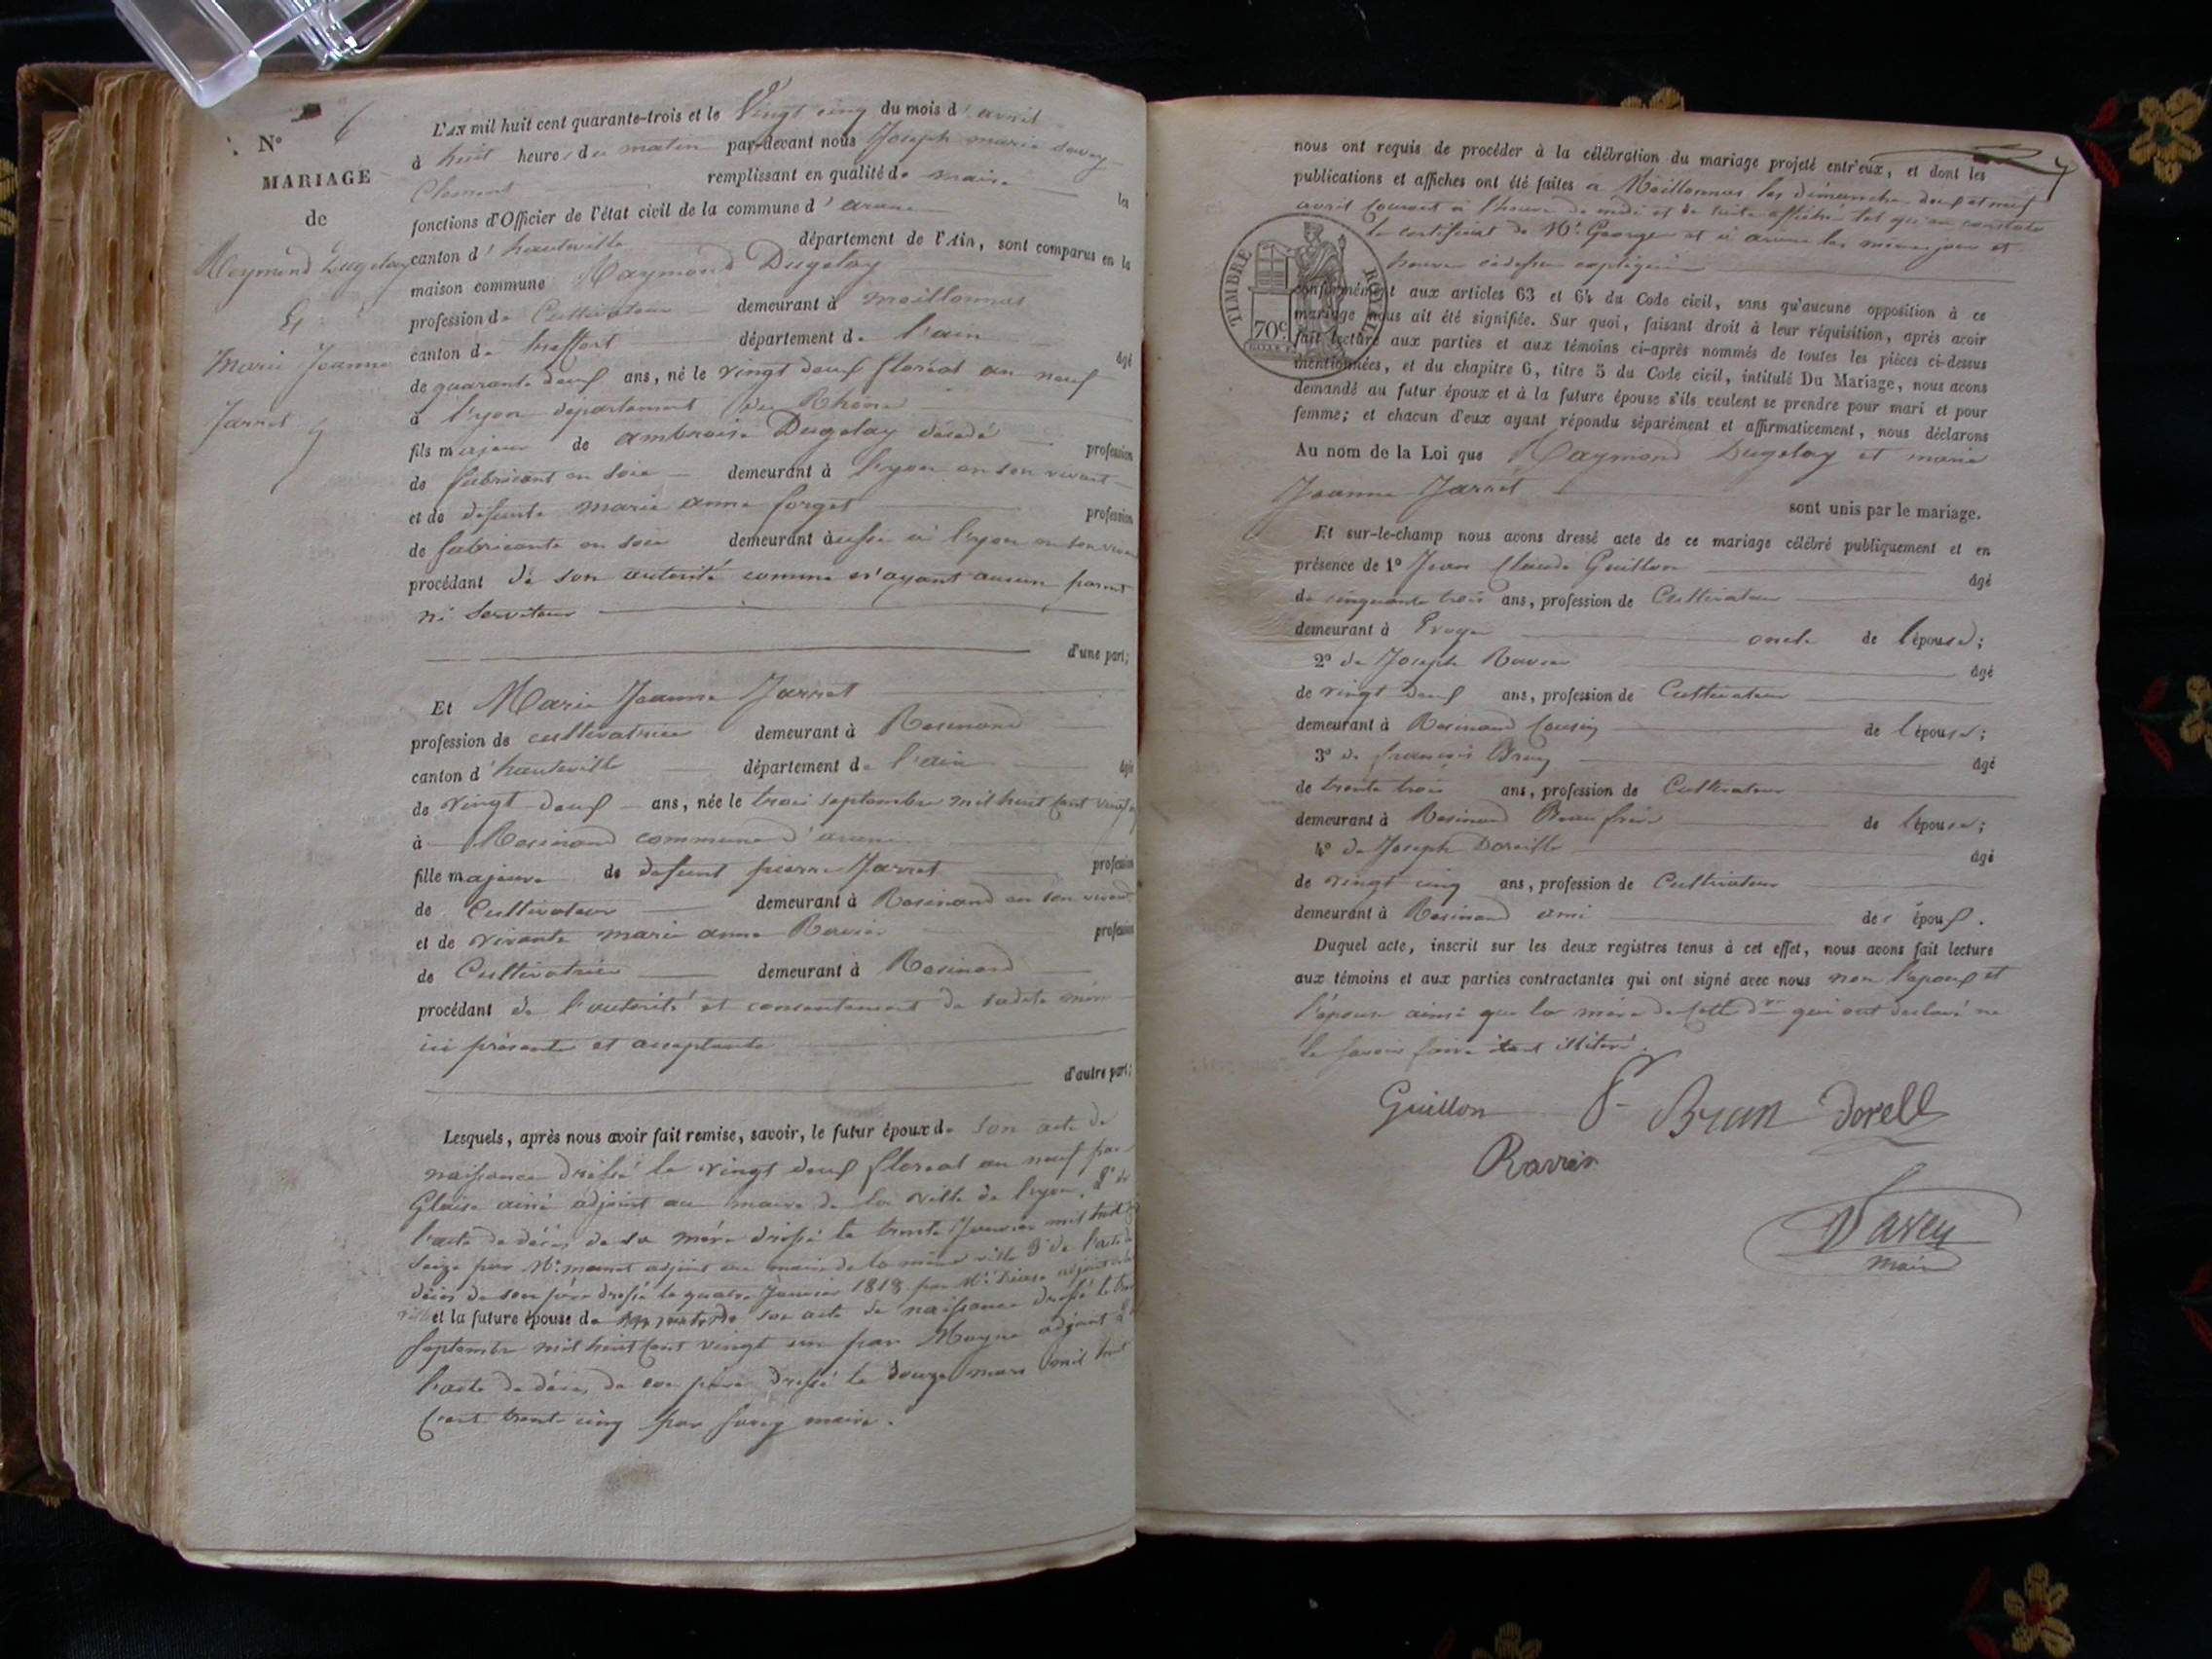 N° 6
MARIAGE
de
Reymond Dugelay
&
Marie Jeanne
Jarret
L'AN mil huit cent quarante-trois et le Vingt cinq du mois d'avril
à huit heures du matin par-devant nous Joseph marie savey
Clement remplissant en qualité de maire les
fonctions d'Officier de l'état civil de la commune d'arane
canton d'hauteville département de l'Ain, sont comparus en la
maison commune Raymond Dugelay
profession de Cultivateur demeurant à meillonnas
canton de treffort département de l'ain âgé
de quarante deux ans, né le vingt deux floréal an neuf
à lyon departement du Rhône
fils majeur de ambroise Dugelay décédé profession
de fabricant en soie demeurant à lyon en son vivant
et de défunte marie anne forget profession
de fabricante en soie demeurant à aussi à lyon en son vivant
procédant de son autorité comme n'ayant aucun parent
ni serviteur
d'une part;
Et Marie Jeanne Jarret
profession de cultivatrice demeurant à Resinand
canton d'hauteville département de l'ain âgée
de vingt deux ans, née le trois septembre mil huit cent vingt un
à Resinand commune d'arane
fille majeure de defunt pierre Jarret profession
de Cultivateur demeurant à Resinand en son vivant
et de vivante marie anne Ravier profession
de Cultivatrice demeurant à Resinand
procédant de l'autorité et consentement de sadite mère
ici présente et acceptante
d'autre part;
Lesquels, après nous avoir fait remise, savoir, le futur époux de son acte de
naissance dressé le vingt deux floreal an neuf par
ainé adjoint au maire de la ville de lyon, 2° de
l'acte de décès de sa mère dressé le trente Janvier mil huit
seize par Mr. adjoint au maire de la même ville 3° de l'acte de
décès de son père dressé le quatre Janvier 1818 par Mr. adjoint
ville et la future épouse de son acte de naissance dressé le trois
septembre mil huit cent vingt un par Moyne adjoint 2°
l'acte de décès de son père dressé le douze mars mil huit
cent trente cinq par savey maire.
nous ont requis de procéder à la célébration du mariage projeté entr'eux, et dont les
publications et affiches ont été faites à Meillonnas les dimanches deux et neuf
avril courant à l'heure de midi et de suite affichée tel qu'en constate
le certificat de Mr. George et à arane les mêmes jour et
heure cidessus expliquée
conformément aux articles 63 et 64 du Code civil, sans qu'aucune opposition à ce
mariage nous ait été signifiée. Sur quoi, faisant droit à leur réquisition, après avoir
fait lecture aux parties et aux témoins ci-après nommés de toutes les pièces ci-dessus
mentionnées, et du chapitre 6, titre 5 du Code civil, intitulé Du Mariage, nous avons
demandé au futur époux et à la future épouse s'ils veulent se prendre pour mari et pour
femme; et chacun d'eux ayant répondu séparément et affirmativement, nous déclarons
Au nom de la Loi que Raymond Dugelay et marie
Jeanne Jarret
sont unis par le mariage.
Et sur-le-champ nous avons dressé acte de ce mariage célébré publiquement et en
présence de 1° Jean Claude Guillon âgé
de cinquante trois ans, profession de Cultivateur
demeurant à oncle de l'épouse;
2° de Joseph Ravier âgé
de vingt deux ans, profession de Cultivateur
demeurant à Resinand Cousin de l'épouse;
3° de françois Brun âgé
de trente trois ans, profession de Cultivateur
demeurant à Resinand Beau frère de l'épouse;
4° de Joseph Doreille âgé
de vingt cinq ans, profession de Cultivateur
demeurant à Resinand ami des époux.
Duquel acte, inscrit sur les deux registres tenus à cet effet, nous avons fait lecture
aux témoins et aux parties contractantes qui ont signé avec nous non l'époux et
l'épouse ainsi que la mère de cette dre qui ont déclaré ne
le savoir faire étant illitéré.
Guillon Brun Dorell
Ravier
Savey
Maire
TIMBRE ROYAL
70c